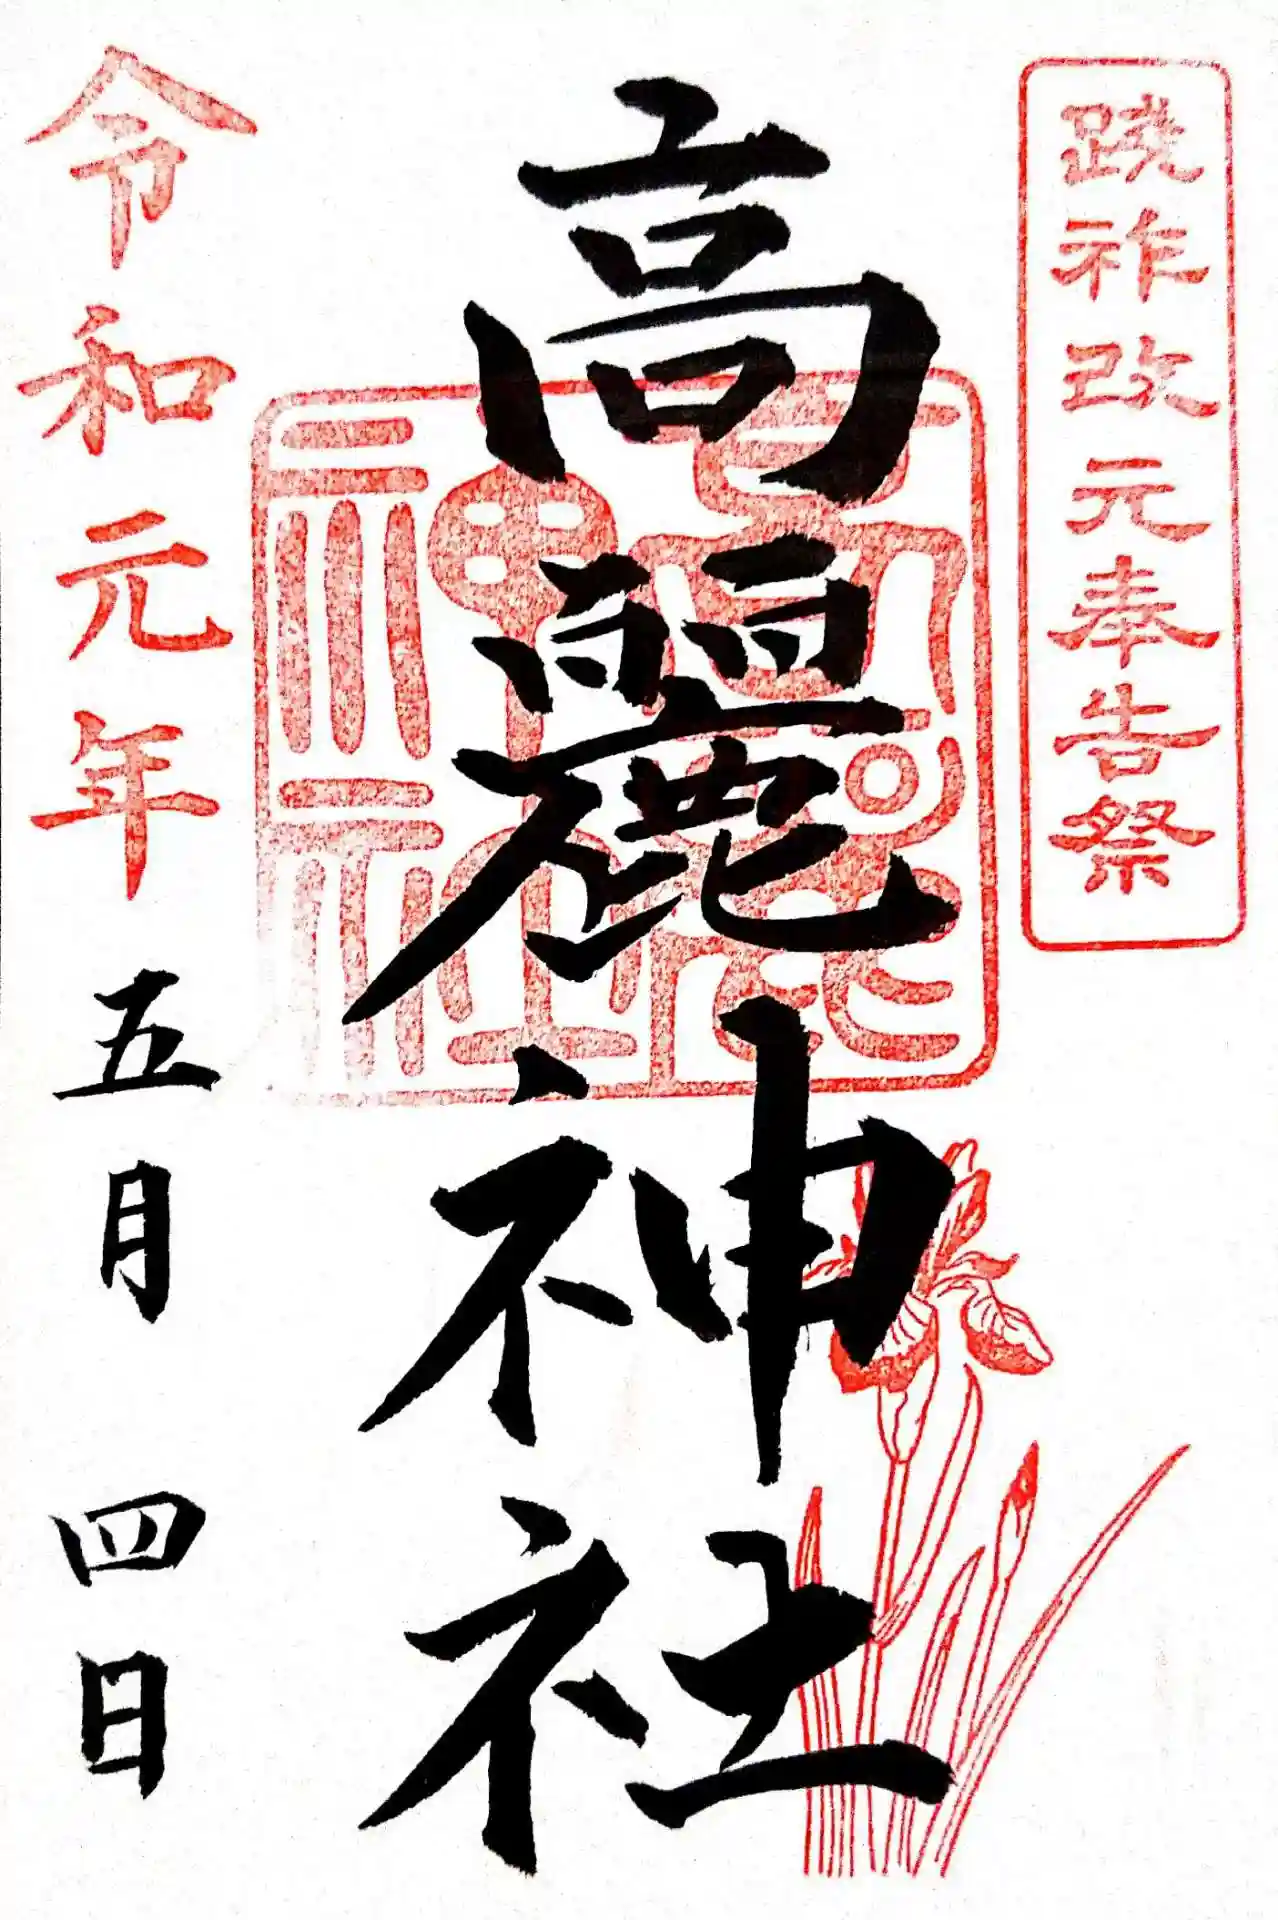 踐祚改元奉告祭
高麗神社
高麗神社
令和元年五月四日